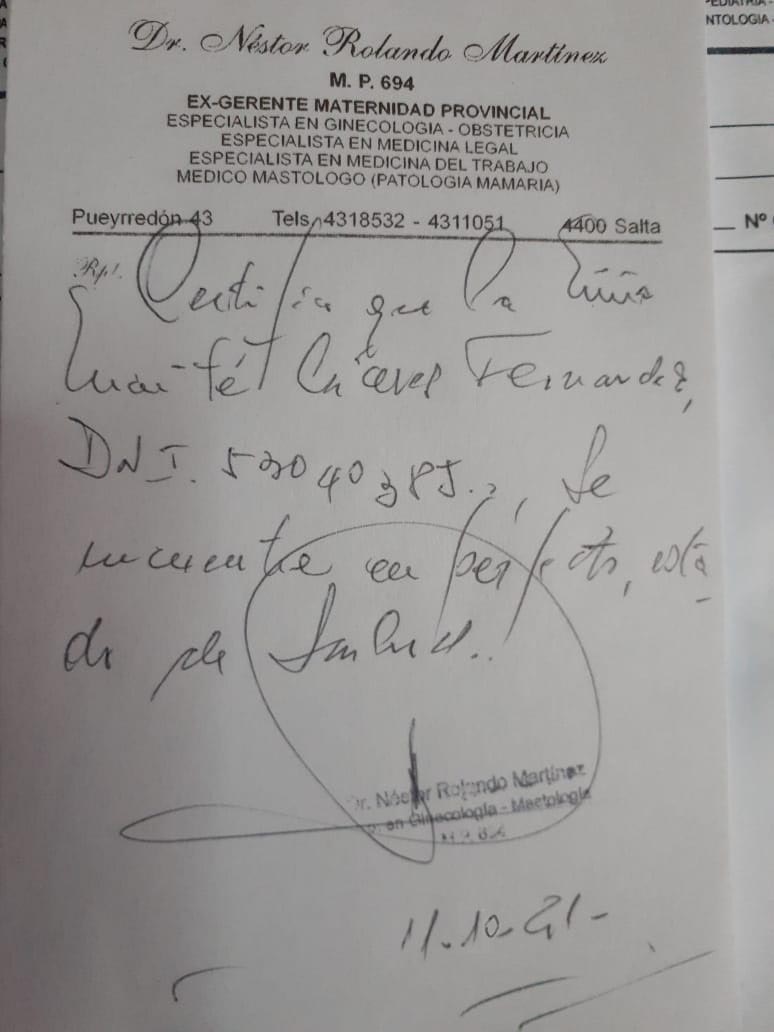 PEDIATRIA -
NTOLOGIA -
Nº
Dr. Néstor Rolando Martínez
M. P. 694
EX-GERENTE MATERNIDAD PROVINCIAL
ESPECIALISTA EN GINECOLOGIA - OBSTETRICIA
ESPECIALISTA EN MEDICINA LEGAL
ESPECIALISTA EN MEDICINA DEL TRABAJO
MEDICO MASTOLOGO (PATOLOGIA MAMARIA)
Pueyrredón 43 Tels. 4318532 - 4311051 4400 Salta
Rp/.
Certifico que la niña
Fernandez,
DNI. 53040385., se
encuentra en perfecto, esta-
do de Salud..
Dr. Néstor Rolando Martínez
en Ginecología - Mastología
11.10.21-